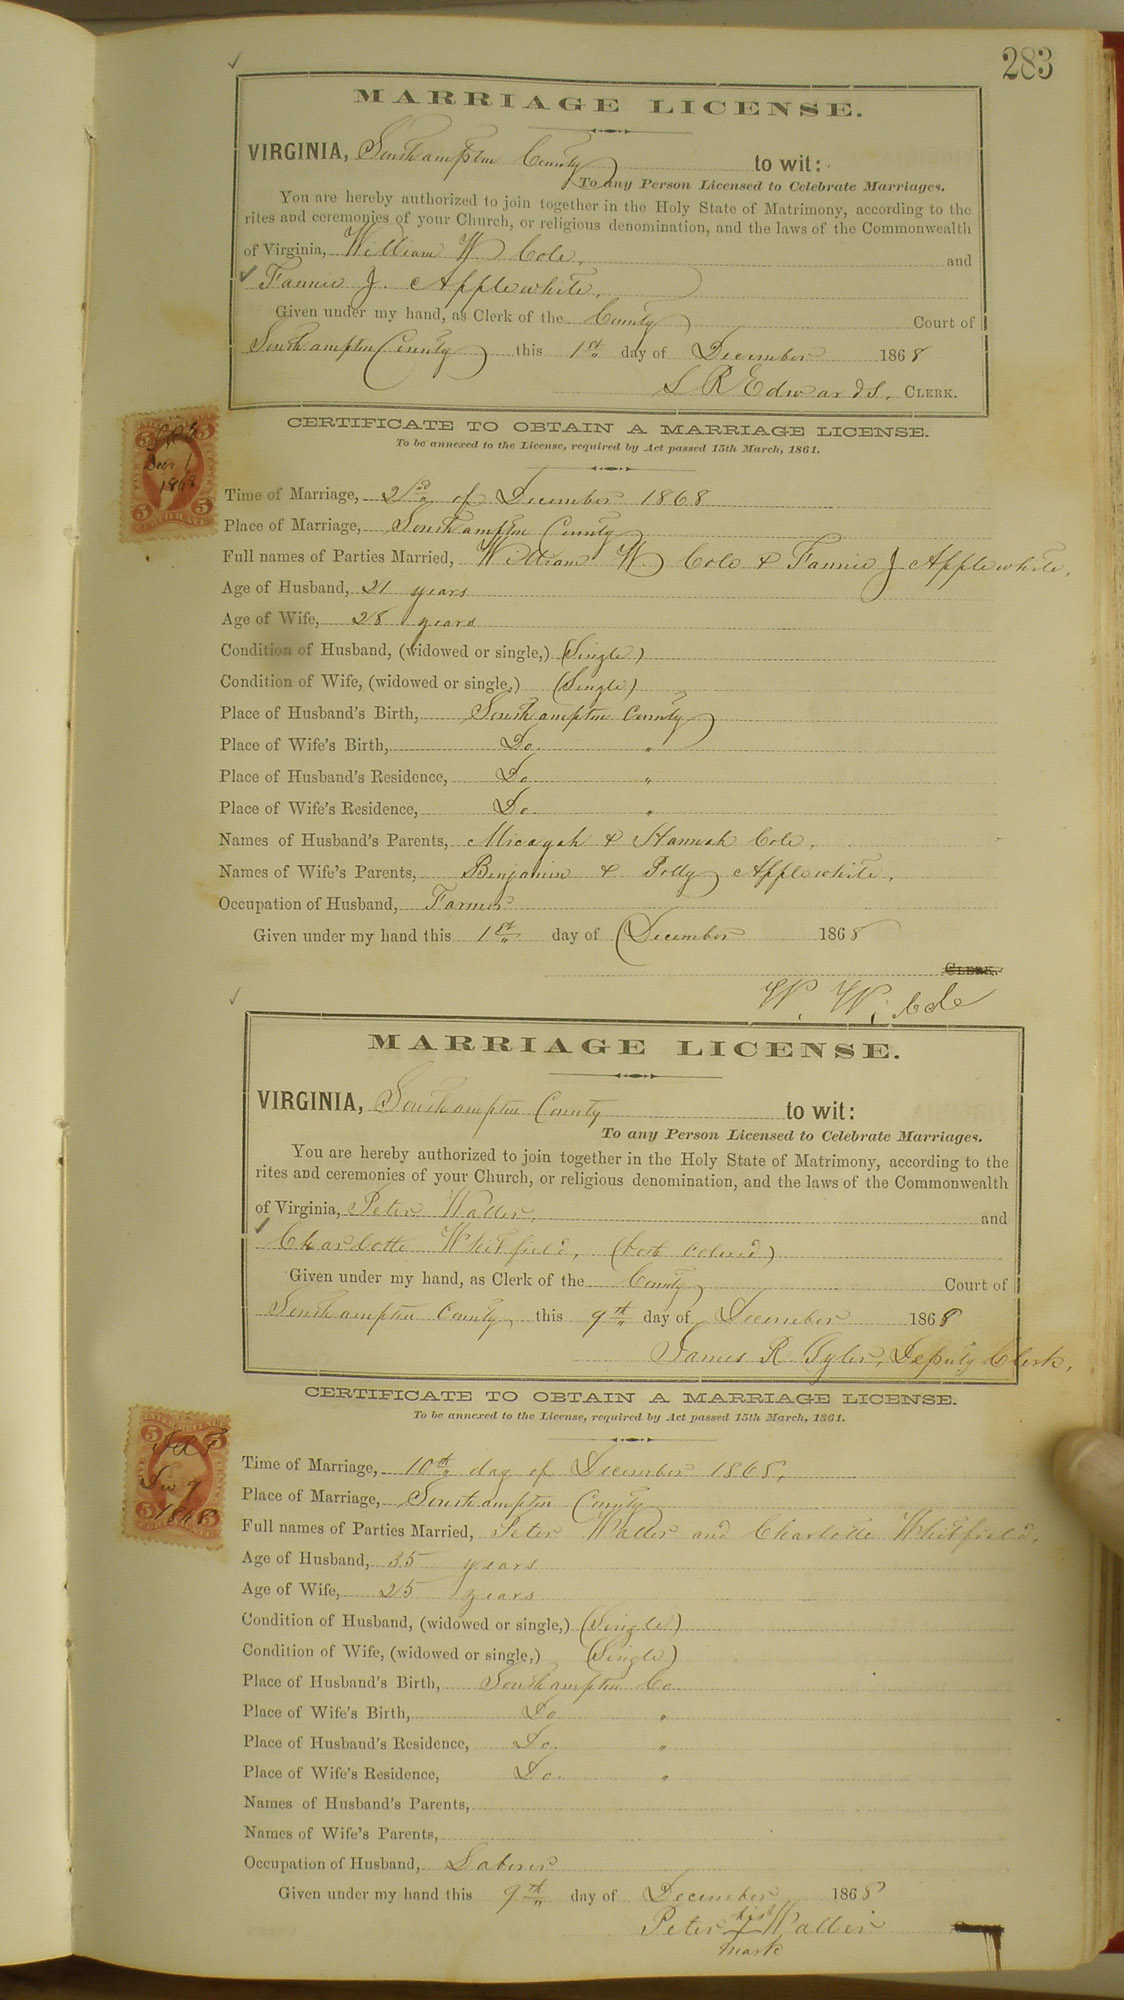 283
MARRIAGE LICENSE.
VIRGINIA, Southampton County to wit:
To any Person Licensed to Celebrate Marriages.
You are hereby authorized to join together in the Holy State of Matrimony, according to the
rites and ceremonies of your Church, or religious denomination, and the laws of the Commonwealth
of Virginia, William W Cole, and
Fannie J. Applewhite,
Given under my hand, as Clerk of the County Court of
Southampton County this 1st day of December 1868
L R Edwards, CLERK.
CERTIFICATE TO OBTAIN A MARRIAGE LICENSE.
To be annexed to the License, required by Act passed 15th March, 1861.
5 5
Dec 1
1868
5 5
CERTIFICATE
Time of Marriage, 2nd of December 1868
Place of Marriage, Southampton County
Full names of Parties Married, William W. Cole & Fannie J Applewhite,
Age of Husband, 21 years
Age of Wife, 28 years
Condition of Husband, (widowed or single,) (Single)
Condition of Wife, (widowed or single,) (Single)
Place of Husband's Birth, Southampton County
Place of Wife's Birth, Do. "
Place of Husband's Residence, Do "
Place of Wife's Residence, Do. "
Names of Husband's Parents, Micagah & Hannah Cole,
Names of Wife's Parents, Benjamin & Polly Applewhite,
Occupation of Husband, Farmer
Given under my hand this 1st day of December 1868
CLERK.
W. W. Cole
MARRIAGE LICENSE.
VIRGINIA, Southampton County to wit:
To any Person Licensed to Celebrate Marriages.
You are hereby authorized to join together in the Holy State of Matrimony, according to the
rites and ceremonies of your Church, or religious denomination, and the laws of the Commonwealth
of Virginia, Peter Waller, and
Charlotte Whitfield, (both colored)
Given under my hand, as Clerk of the County Court of
Southampton County, this 9th day of December 1868
James R Tyler, Deputy Clerk,
CERTIFICATE TO OBTAIN A MARRIAGE LICENSE.
To be annexed to the License, required by Act passed 15th March, 1861.
5 5
Dec 9
1868
5 5
Time of Marriage, 10th day of December 1868,
Place of Marriage, Southampton County
Full names of Parties Married, Peter Waller and Charlotte Whitfield,
Age of Husband, 35 years
Age of Wife, 25 years
Condition of Husband, (widowed or single,) (Single)
Condition of Wife, (widowed or single,) (Single)
Place of Husband's Birth, Southampton Co.
Place of Wife's Birth, Do "
Place of Husband's Residence, Do. "
Place of Wife's Residence, Do. "
Names of Husband's Parents,
Names of Wife's Parents,
Occupation of Husband, Laborer
Given under my hand this 9th day of December 1868
his
Peter Waller
mark